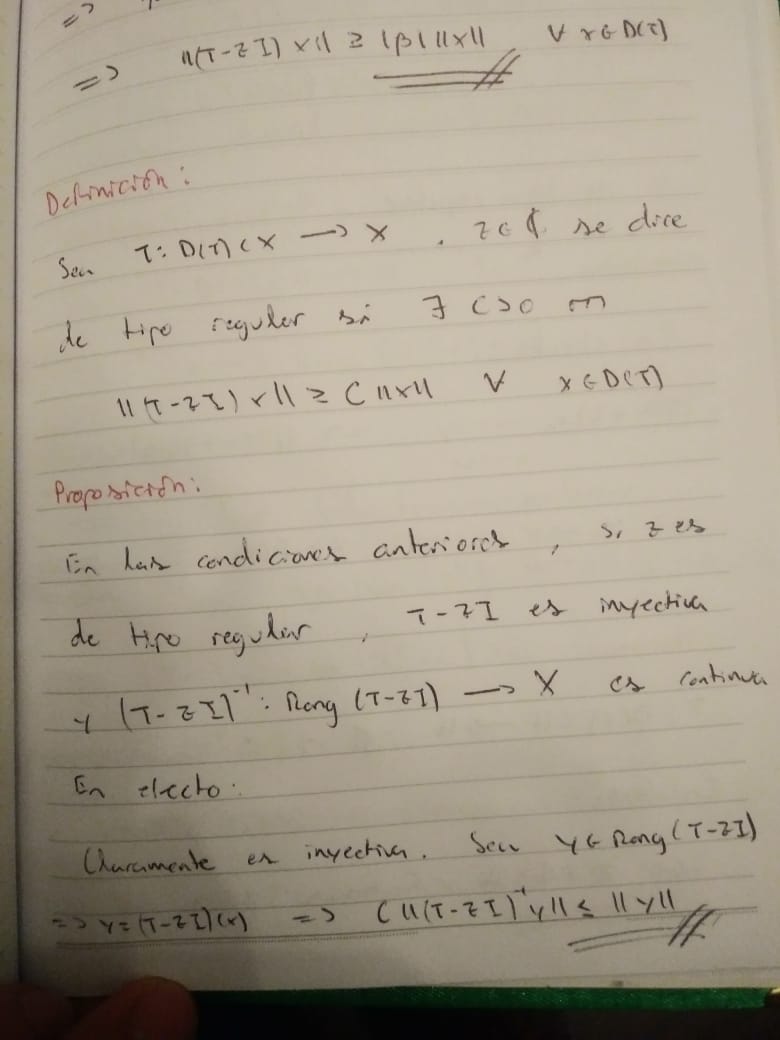 =>
=> ||(T-zI)x|| ≥ |β| ||x|| ∀ x∈D(T)
Definición:
Sea T: D(T)⊂X → X, z∈ℂ se dice
de tipo regular si ∃ C>0 m
||(T-zI)x|| ≥ C||x|| ∀ x∈D(T)
Proposición:
En las condiciones anteriores, si z es
de tipo regular, T-zI es inyectiva
y (T-zI)⁻¹: Rang(T-zI) → X es continua
En efecto:
Claramente es inyectiva. Sea y∈Rang(T-zI)
=> y=(T-zI)(x) => C||(T-zI)⁻¹y|| ≤ ||y||